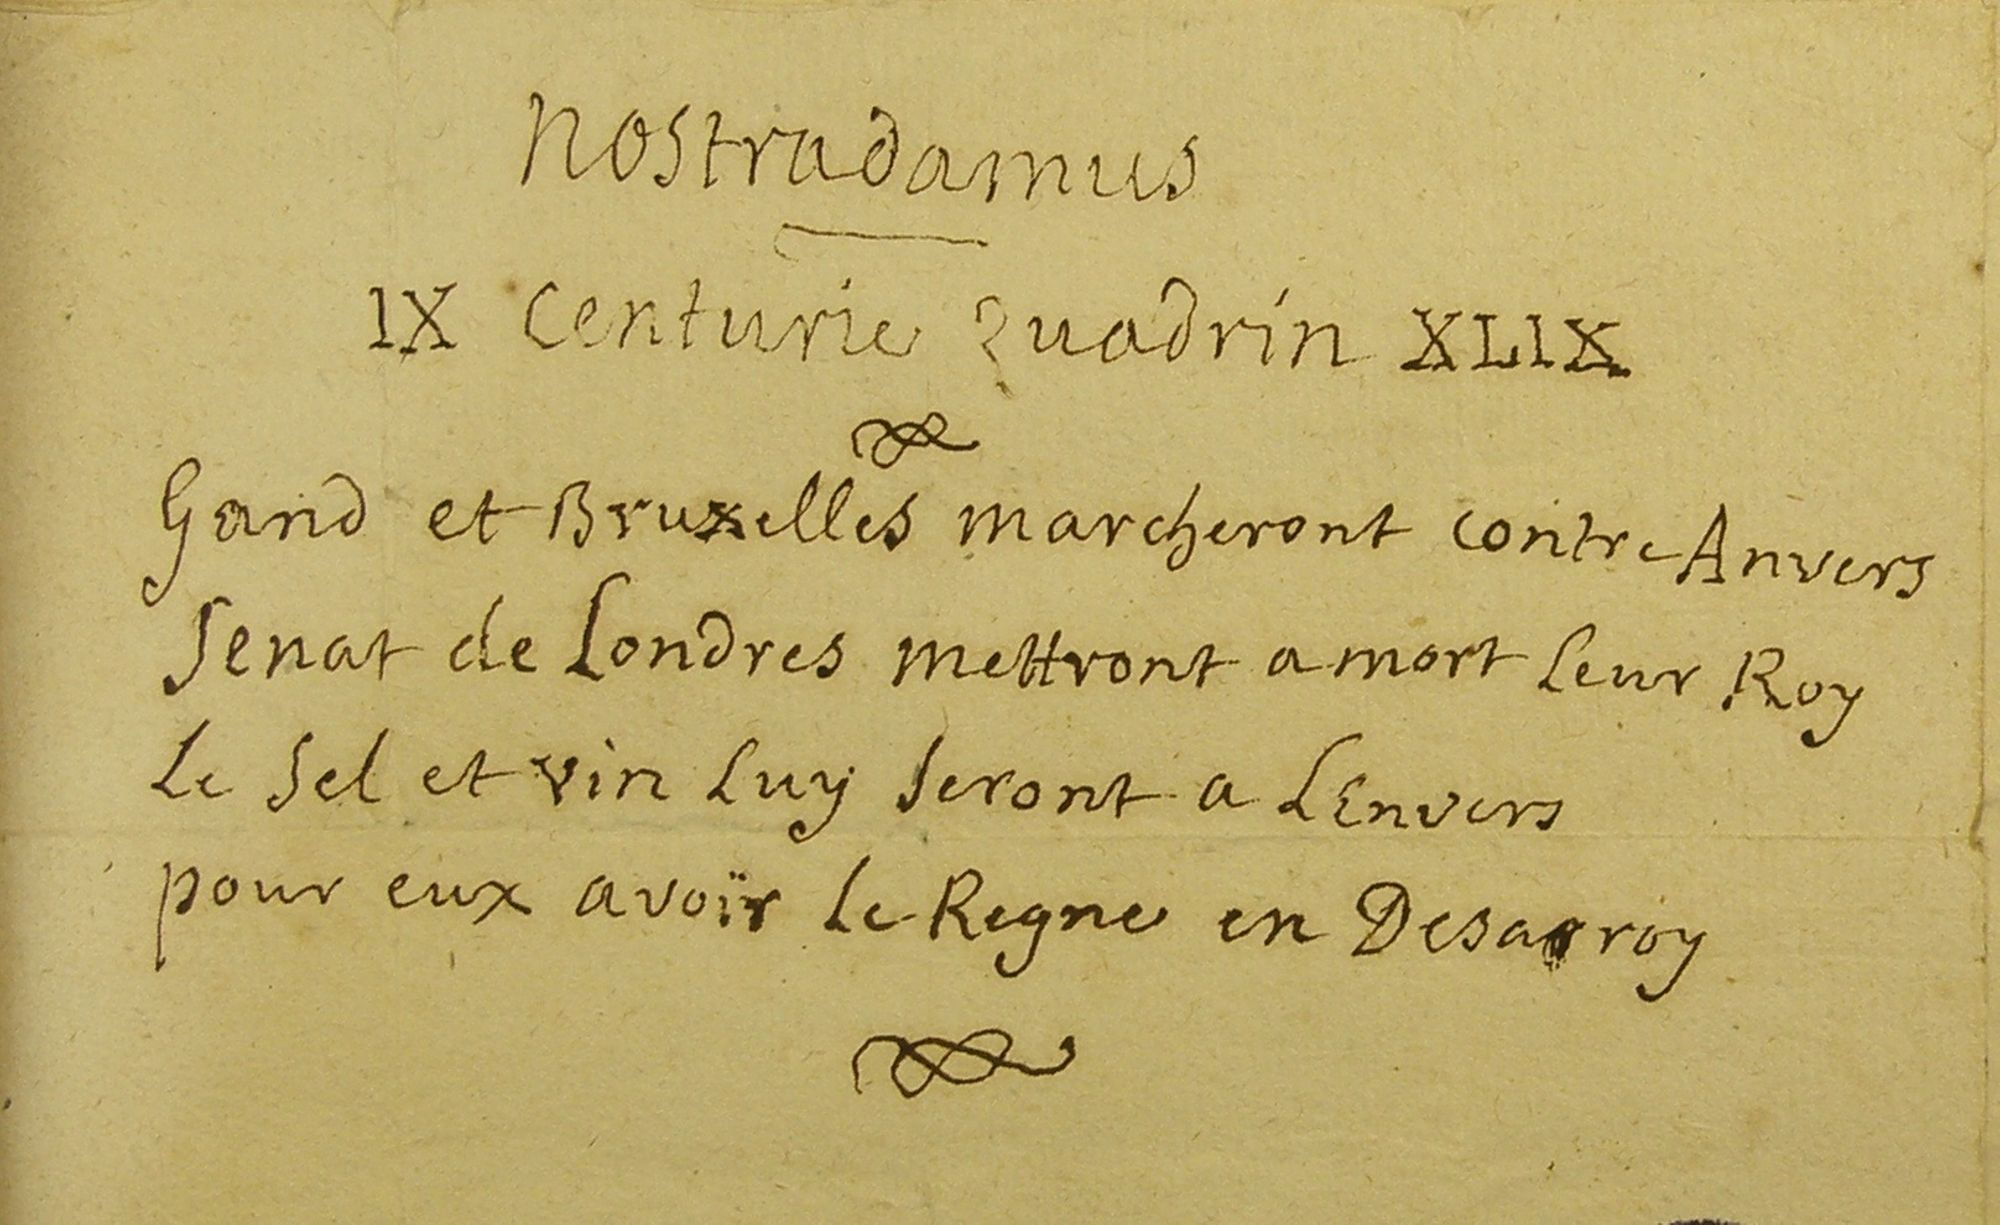 Nostradamus
IX Centurie Quadrin XLIX
Gand et Bruxelles marcheront contre Anvers
Senat de Londres mettront a mort Leur Roy
Le Sel et vin Luy Seront a LEnvers
pour eux avoïr Le Regne en Desarroy